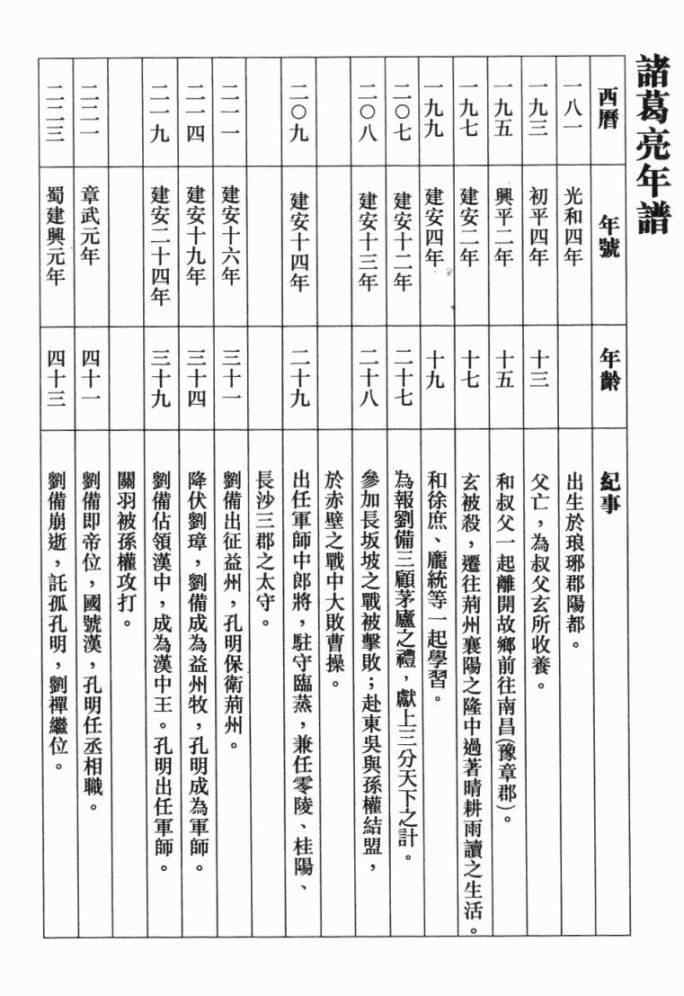 諸葛亮年譜
西曆 年號 年齡 紀事
一八一 光和四年 出生於琅琊郡陽都。
一九三 初平四年 十三 父亡，為叔父玄所收養。
一九五 興平二年 十五 和叔父一起離開故鄉前往南昌(豫章郡)。
一九七 建安二年 十七 玄被殺，遷往荊州襄陽之隆中過著晴耕雨讀之生活。
一九九 建安四年 十九 和徐庶、龐統等一起學習。
二〇七 建安十二年 二十七 為報劉備三顧茅廬之禮，獻上三分天下之計。
二〇八 建安十三年 二十八 參加長坂坡之戰被擊敗；赴東吳與孫權結盟，
於赤壁之戰中大敗曹操。
二〇九 建安十四年 二十九 出任軍師中郎將，駐守臨蒸，兼任零陵、桂陽、
長沙三郡之太守。
二一一 建安十六年 三十一 劉備出征益州，孔明保衛荊州。
二一四 建安十九年 三十四 降伏劉璋，劉備成為益州牧，孔明成為軍師。
二一九 建安二十四年 三十九 劉備佔領漢中，成為漢中王。孔明出任軍師。
關羽被孫權攻打。
二二一 章武元年 四十一 劉備即帝位，國號漢，孔明任丞相職。
二二三 蜀建興元年 四十三 劉備崩逝，託孤孔明，劉禪繼位。